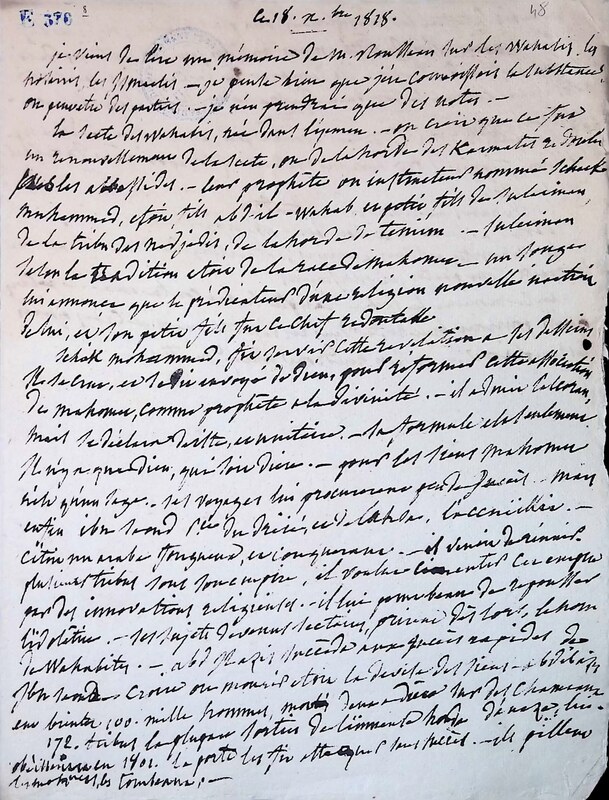 370
48
ce 18. x.bre 1818.
je viens de lire un mémoire de m. rousseau sur les Wahabis, les
nosairis, les ismaelis. — je pense bien que j'en connoissois la substance
ou peutetre des parties. — je n'en prendrai que des notes. —
la secte des Wahabis, née dans l'yemen. — on croit que ce fut
un renouvellement de la secte, ou de la horde des Karmates
les abassides. — leur prophète ou instituteur nommé scheik
muhammed, etoit fils abd-il-wahab et petit fils de suleiman,
de la tribu des nedjedis, de la horde de temim. — suleiman
selon la tradition etoit de la race de mahomet — un songe
lui annonça que le prédicateur d'une religion nouvelle naitroit
de lui, et son petit fils fut ce chef redoutable
scheik mohammed, fit servir cette revelation a ses desseins
il se crut, et se dit envoyé de dieu, pour reformer cette association
de mahomet, comme prophète a la divinité. — il admit le coran,
mais se déclara deiste, et unitaire. — sa formule est seulement
il n'y a que dieu, que son dieu. — pour les siens mahomet
n'est qu'un sage. — ses voyages lui procurerent peu de succès — mais
enfin ebn saoud du et de l'accueillit. —
c'étoit un arabe fougueux, et conquerant. — il venoit de réunir
plusieurs tribus sous son empire, il voulut cimenter cet empire
par des innovations religieuses. — il lui parut beau de repousser
l'idolâtrie. — ses sujets devenus sectaires, prirent dès lors, le nom
de Wahabites. — abd elazis succède aux succès rapides de
ebn saoud croire ou mourir etoit la devise des siens
eut bientôt 100. mille hommes, montés deux a deux sur des chameaux
172. tribus la plupart sorties de l'immense horde d'
obéissoient en 1801. la porte les fit attaquer sans succès. — ils pillent
les mosquées, les tombeaux, —